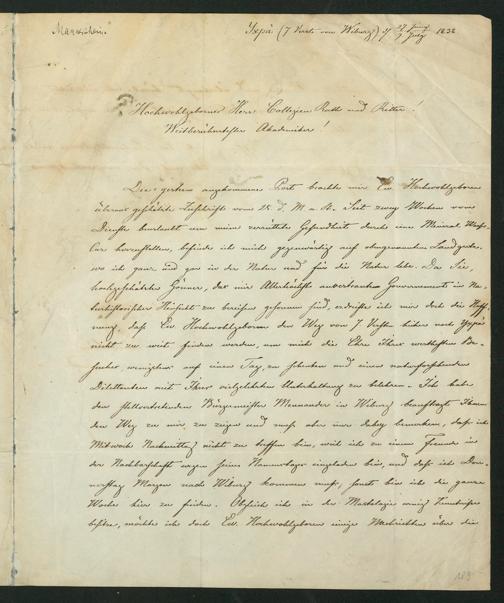 Mannerheim.
(7 Werste von Wiburg) d. 27 Juny / 9 July 1832
Hochwohlgeborner Herr Collegien Rath und Ritter!
Weitberühmtester Akademiker!
Die gestern angekommene Post brachte mir Ew Hochwohlgeboren
überaus geschätzte Zuschrift vom 25. d. M. a. St. Seit zwey Wochen vom
Dienste beurlaubt um meine zerrüttete Gesundheit durch eine Mineral Wasser
Cur herzustellen, befinde ich mich gegenwärtig auf obengenanntem Landgute,
wo ich ganz und gar in der Natur und für die Natur lebe. Da Sie,
hochgeschätzter Gönner, das mir Allerhöchst anvertraute Gouvernement in Na-
turhistorischer Hinsicht zu bereisen gesonnen sind, erdreiste ich mir doch die Hoff-
nung, daß Ew Hochwohlgeboren den Weg von 7 Wersten hieher nach
nicht zu weit finden werden, um mich die Ehre Ihres werthesten Be-
suches, wenigstens auf einen Tag, zu schenken und einen naturforschenden
Dilettanten mit Ihrer vielgelehrten Unterhaltung zu beehren. Ich habe
den stellvertretenden Bürgermeister Mennander in Wiburg beauftragt Ihnen
den Weg zu mir zu zeigen und muß aber nur dabey bemerken, daß ich
Mittwoch Nachmittag nicht zu treffen bin, weil ich zu einem Freunde in
der Nachbarschaft wegen seines Namenstages eingeladen bin, und daß ich Don-
nerstag Morgen nach Wiburg kommen muß, sonst bin ich die ganze
Woche hier zu finden. Obgleich ich in der wenig Kenntnisse
besitze, möchte ich doch Ew. Hochwohlgeboren einige Nachrichten über die